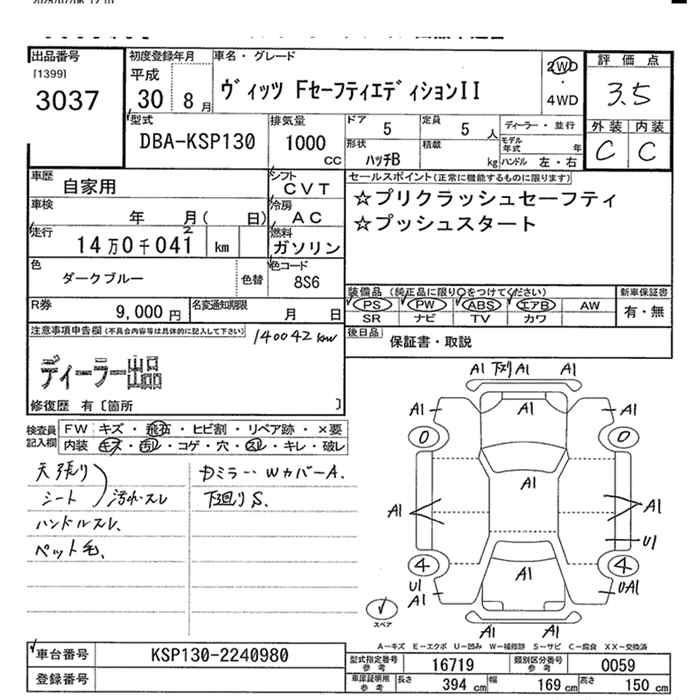 出品番号
[1399]
3037
初度登録年月
平成
30 8月
車名・グレード
ヴィッツ FセーフティエディションII
2WD
4WD
評価点
3.5
外装 内装
C C
型式
DBA-KSP130
排気量
1000
CC
ドア 5
定員 5 人
ディーラー・並行
形状 ハッチB
積載 kg
モデル年式 年
ハンドル 左・右
車歴
自家用
シフト
CVT
車検
年 月( 日)
冷房
AC
走行
14万0千041 km
2
燃料
ガソリン
色
ダークブルー
色替
色コード
8S6
セールスポイント(正常に機能するものに限ります)
☆プリクラッシュセーフティ
☆プッシュスタート
R券
9,000 円
名変通知期限
月 日
装備品(純正品に限り○をつけてください)
PS PW ABS エアB AW
SR ナビ TV カワ
新車保証書
有・無
後日品
保証書・取説
注意事項申告欄(不具合内容等は具体的に記入して下さい)
140042km
ディーラー出品
修復歴 有〔箇所 〕
検査員記入欄
FW キズ・飛石・ヒビ割・リペア跡・×要
内装 キズ・汚れ・コゲ・穴・スレ・キレ・破レ
天張り
シート 汚れ・スレ
ハンドルスレ、
ペット毛、
Dミラー・WカバーA.
下廻りS.
A1 下廻り A1 A1
A1 A1 A1
0 0
A1
A1 A1
U1
A1
4 4
U1 UA1
A1
A1 A1
スペア
A―キズ E―エクボ U―凹み W―補修跡 S―サビ C―腐食 XX―交換済
車台番号
KSP130-2240980
登録番号
型式指定番号参考
16719
類別区分番号参考
0059
車庫証明用参考
長さ 394 cm 幅 169 cm 高さ 150 cm